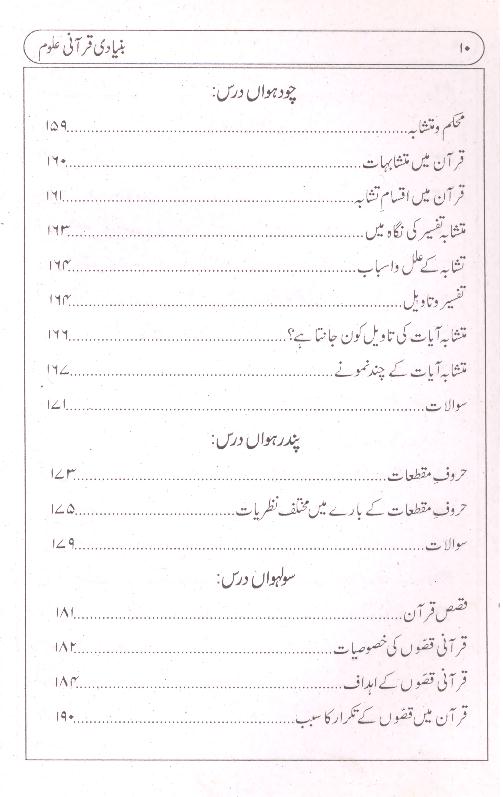 ۱۰ بنیادی قرآنی علوم
چودہواں درس:
محکم و متشابہ........................۱۵۹
قرآن میں متشابہات........................۱۶۰
قرآن میں اقسام تشابہ........................۱۶۱
متشابہ تفسیر کی نگاہ میں........................۱۶۳
تشابہ کے علل و اسباب........................۱۶۴
تفسیر و تاویل........................۱۶۴
متشابہ آیات کی تاویل کون جانتا ہے؟........................۱۶۶
متشابہ آیات کے چند نمونے........................۱۶۷
سوالات........................۱۷۱
پندرہواں درس:
حروفِ مقطعات........................۱۷۳
حروفِ مقطعات کے بارے میں مختلف نظریات........................۱۷۵
سوالات........................۱۷۹
سولہواں درس:
قصص قرآن........................۱۸۱
قرآنی قصّوں کی خصوصیات........................۱۸۲
قرآنی قصّوں کے اہداف........................۱۸۴
قرآن میں قصّوں کے تکرار کا سبب........................۱۹۰